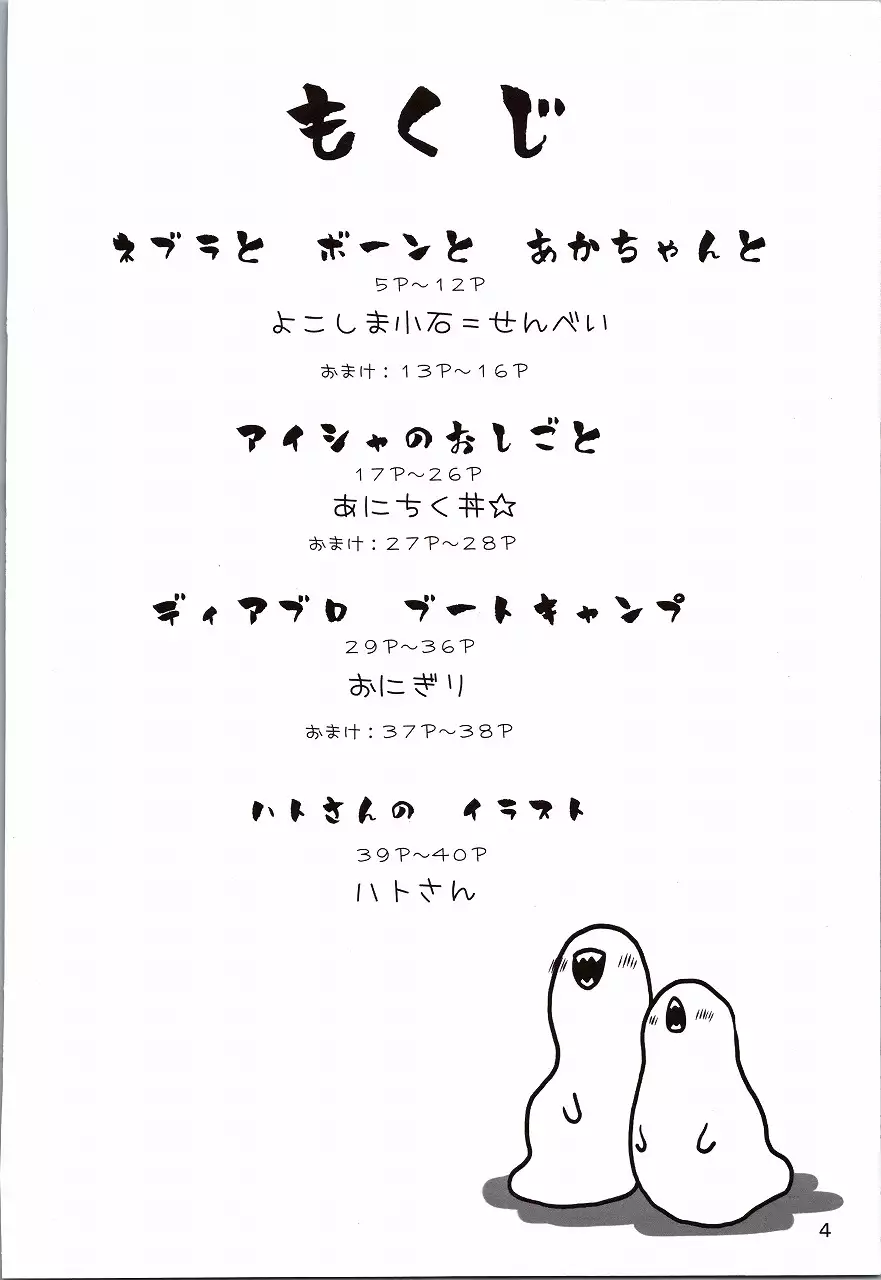 もくじ
ネブラと ボーンと あかちゃんと
5P～12P
よこしま小石＝せんべい
おまけ：13P～16P
アイシャのおしごと
17P～26P
あにちく丼☆
おまけ：27P～28P
ディアブロ ブートキャンプ
29P～36P
おにぎり
おまけ：37P～38P
ハトさんの イラスト
39P～40P
ハトさん
4